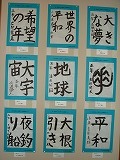 大き
な夢
世界の
平和
希望
の年
地球
大宇
宙
平和
大根
引き
夜釣
り船